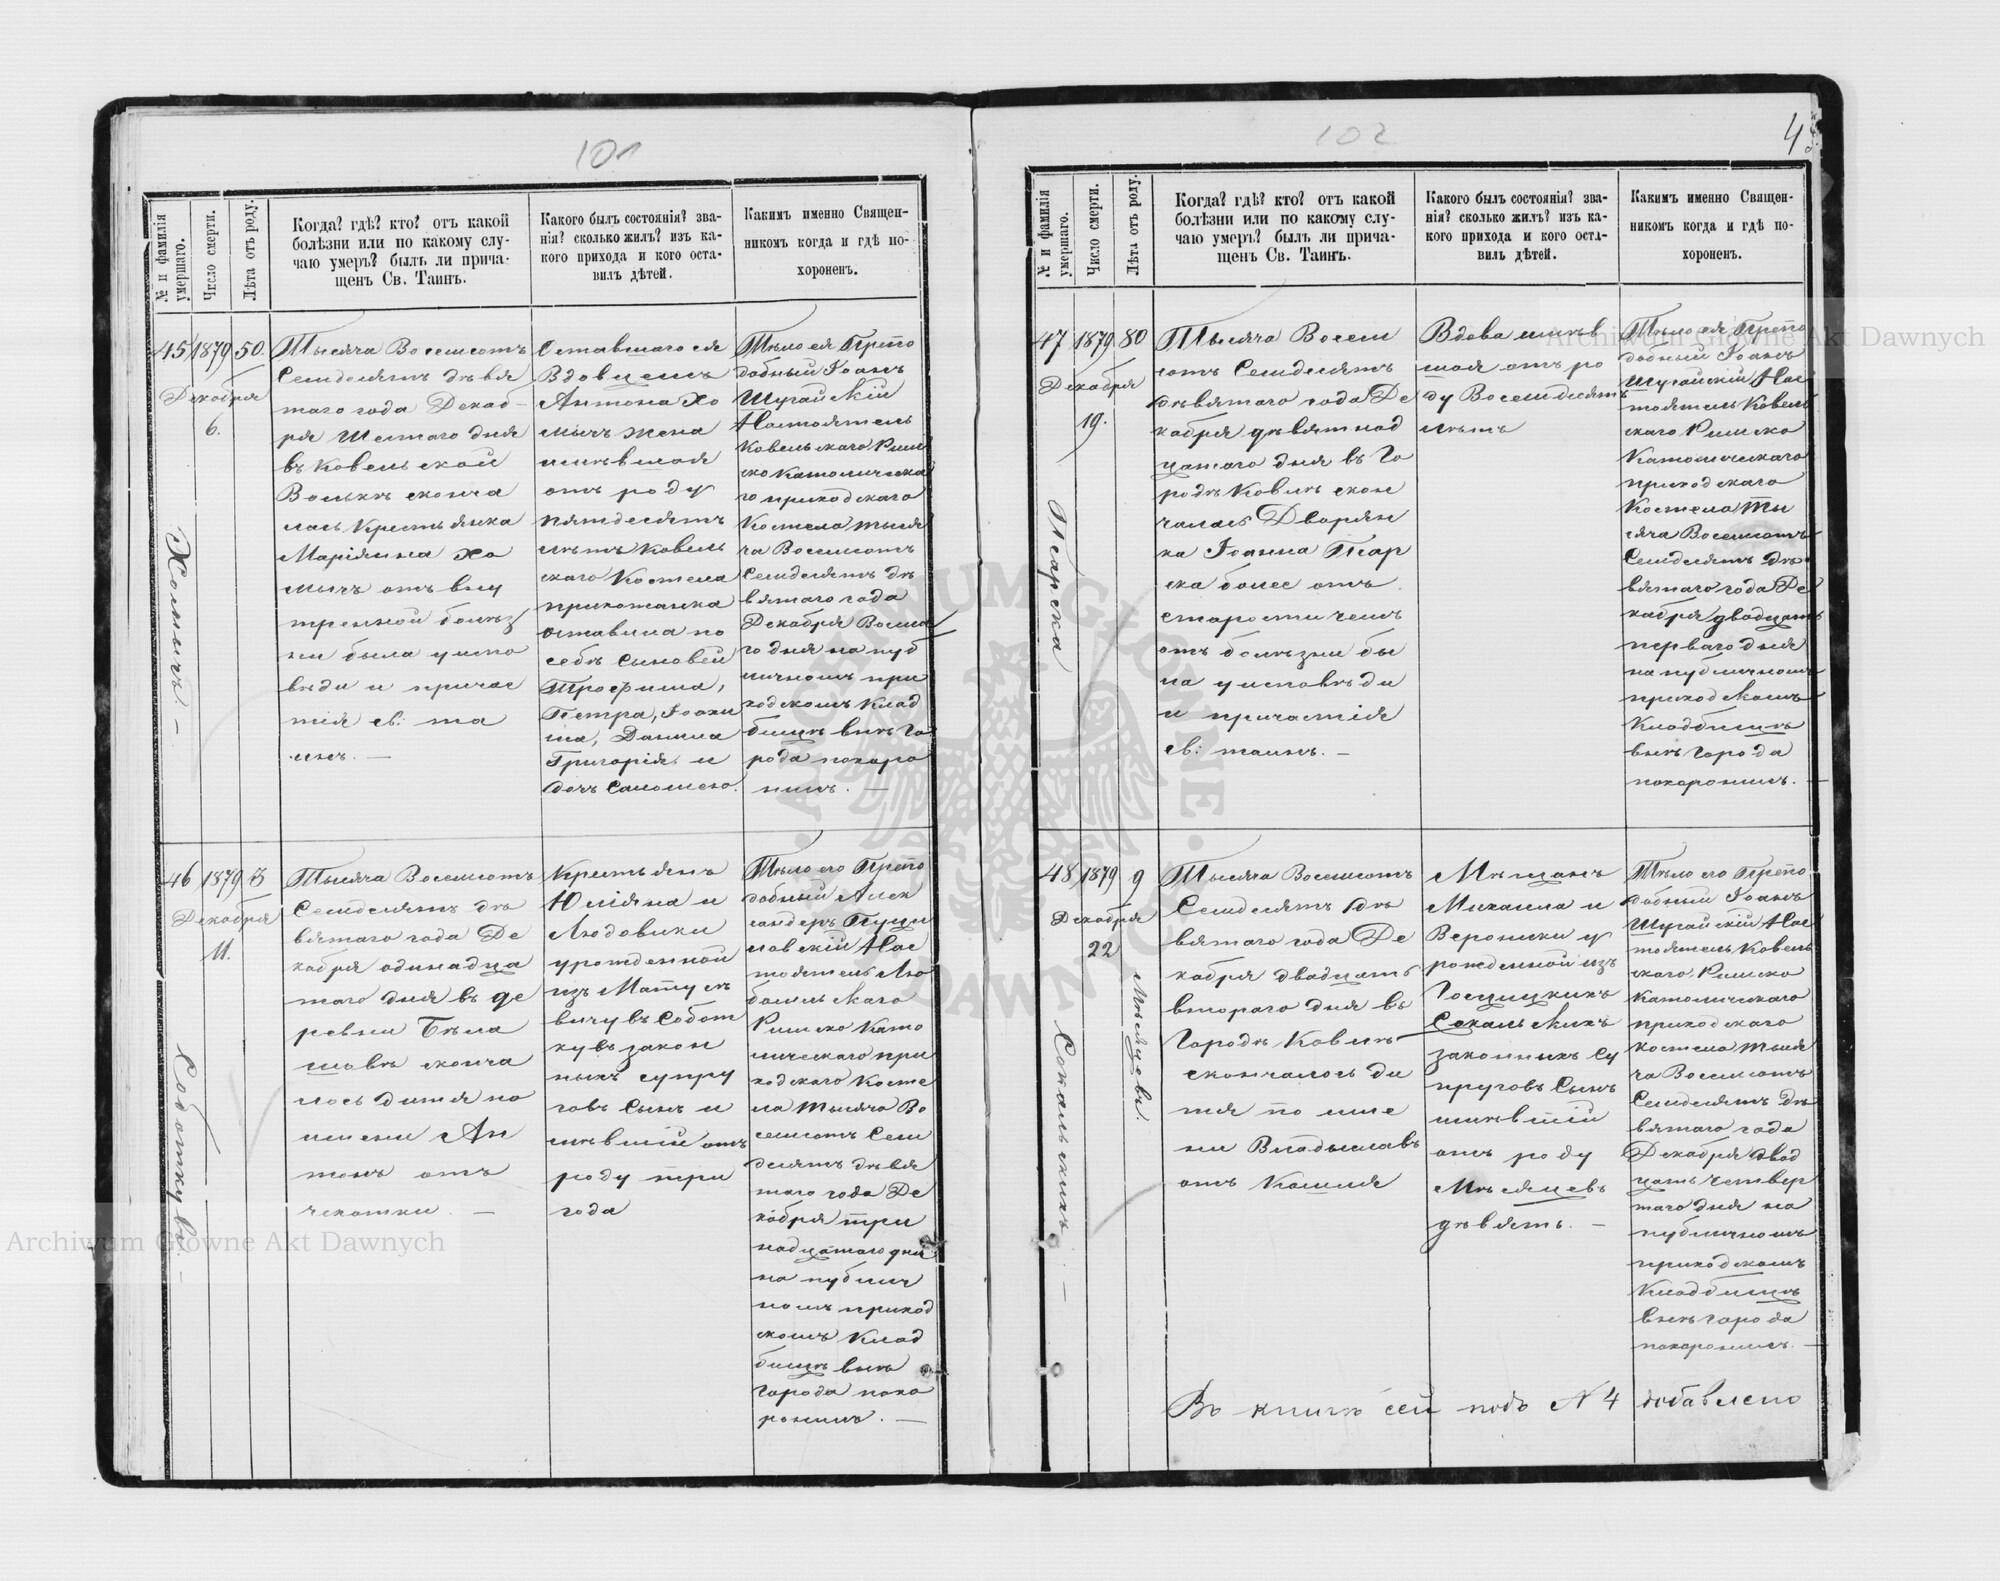 101
№ и фамилія умершаго.
Число смерти.
Лѣта отъ роду.
Когда? гдѣ? кто? отъ какой
болѣзни или по какому слу-
чаю умеръ? былъ ли прича-
щенъ Св. Таинъ.
Какого былъ состоянія? зва-
нія? сколько жилъ? изъ ка-
кого прихода и кого оста-
вилъ дѣтей.
Какимъ именно Священ-
никомъ когда и гдѣ по-
хороненъ.
45
1879
Декабря
6.
50.
Хомичъ. —
Тысяча Восемсотъ
Семдесятъ девя
таго года Декаб-
ря Шестаго дня
въ Ковельской
Волькѣ сконча
лась Крестьянка
Маріянна Хо
мичъ отъ вну
тренной болѣз
ни была у испо
вѣди и причас
тія св: та
инъ. —
Оставшагося
Вдовцемъ
Антона Хо
мичъ жена
имѣвшая
отъ роду
пятдесятъ
лѣтъ Ковель
скаго Костела
прихожанка
оставила по
себѣ Сыновей
Трофима,
Петра, Іоахи
ма, Данила
Григорія и
дочь Саломею.
Тѣло ея Препо
добный Іоанъ
Шугайскій
Настоятель
Ковельскаго Рим
ско Католическа
го приходскаго
Костела тыся
ча Восемсотъ
Семдесятъ де
вятаго года
Декабря Восма
го дня на пуб
личномъ при
ходскомъ Клад
бищѣ внѣ Го
рода похоро
нилъ. —
46
1879
Декабря
11.
3
Соботкувъ. —
Тысяча Восемсотъ
Семдесятъ де
вятаго года Де
кабря одинадца
таго дня въ де
ревни Бѣла
шовѣ сконча
лось дитя по
имени Ан
тонъ отъ
чехотки. —
Крестьянъ
Юліяна и
Людовики
урожденной
изъ Матусе
вичувъ Собот
кувъ закон
ныхъ супру
говъ Сынъ и
мѣвшій отъ
роду три
года
Тѣло его Препо
добный Алек
сандеръ
Нас
тоятель Лю
бомльскаго
Римско Като
лическаго при
ходскаго Косте
ла тысяча Во
семсотъ Сем
десятъ девя
таго года Де
кабря три
надцатаго дня
на публич
номъ приход
скомъ Клад
бищѣ внѣ
города похо
ронилъ. —
102
№ и фамилія умершаго.
Число смерти.
Лѣта отъ роду.
Когда? гдѣ? кто? отъ какой
болѣзни или по какому слу-
чаю умеръ? былъ ли прича-
щенъ Св. Таинъ.
Какого былъ состоянія? зва-
нія? сколько жилъ? изъ ка-
кого прихода и кого оста-
вилъ дѣтей.
Какимъ именно Священ-
никомъ когда и гдѣ по-
хороненъ.
47
1879
Декабря
19.
80
Псарска
Тысяча Восем
сотъ Семдесятъ
девятаго года Де
кабря девятнад
цатаго дня въ Го
родѣ Ковелѣ скон
чалась Дворян
ка Іоанна Псар
ска более отъ
старости чемъ
отъ болѣзни бы
ла у исповѣди
и причастія
св: таинъ. —
Вдова имѣв
шая отъ ро
ду Восемдесятъ
лѣтъ
Тѣло ея Препо
добный Іоанъ
Шугайскій Нас
тоятель Ковель
скаго Римско
Католическаго
приходскаго
Костела Ты
сяча Восемсотъ
Семдесятъ де
вятаго года Де
кабря двадцать
перваго дня
на публичномъ
приходскомъ
Кладбищѣ
внѣ Города
похоронилъ. —
48
1879
Декабря
22
9
Мѣсяцевъ.
Сокальскихъ —
Тысяча Восемсотъ
Семдесятъ де
вятаго года Де
кабря двадцать
втораго дня въ
Городѣ Ковелѣ
скончалось ди
тя по име
ни Владыславъ
отъ Кашля
Мѣщанъ
Михаила и
Вероники у
рожденной изъ
Сокальскихъ
законныхъ Су
пруговъ Сынъ
имѣвшій
отъ роду
Мѣсяцевъ
девять. —
Тѣло его Препо
добный Іоанъ
Шугайскій Нас
тоятель Ковель
скаго Римско
Католическаго
приходскаго
костела тыся
ча Восемсотъ
Семдесятъ де
вятаго года
Декабря двад
цать Четвер
таго дня на
публичномъ
приходскомъ
Кладбищѣ
внѣ города
похоронилъ. —
Въ книгѣ сей подъ № 4 добавлено
Archiwum Główne Akt Dawnych
Archiwum Główne Akt Dawnych
ARCHIWUM GŁÓWNE AKT DAWNYCH